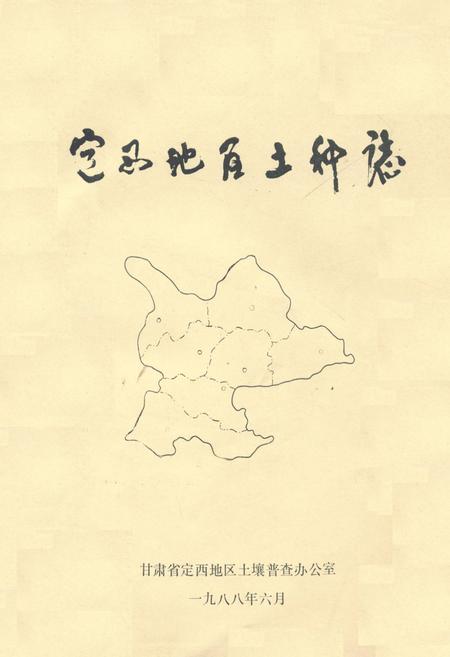 定西地区土种誌
甘肃省定西地区土壤普查办公室
一九八八年六月